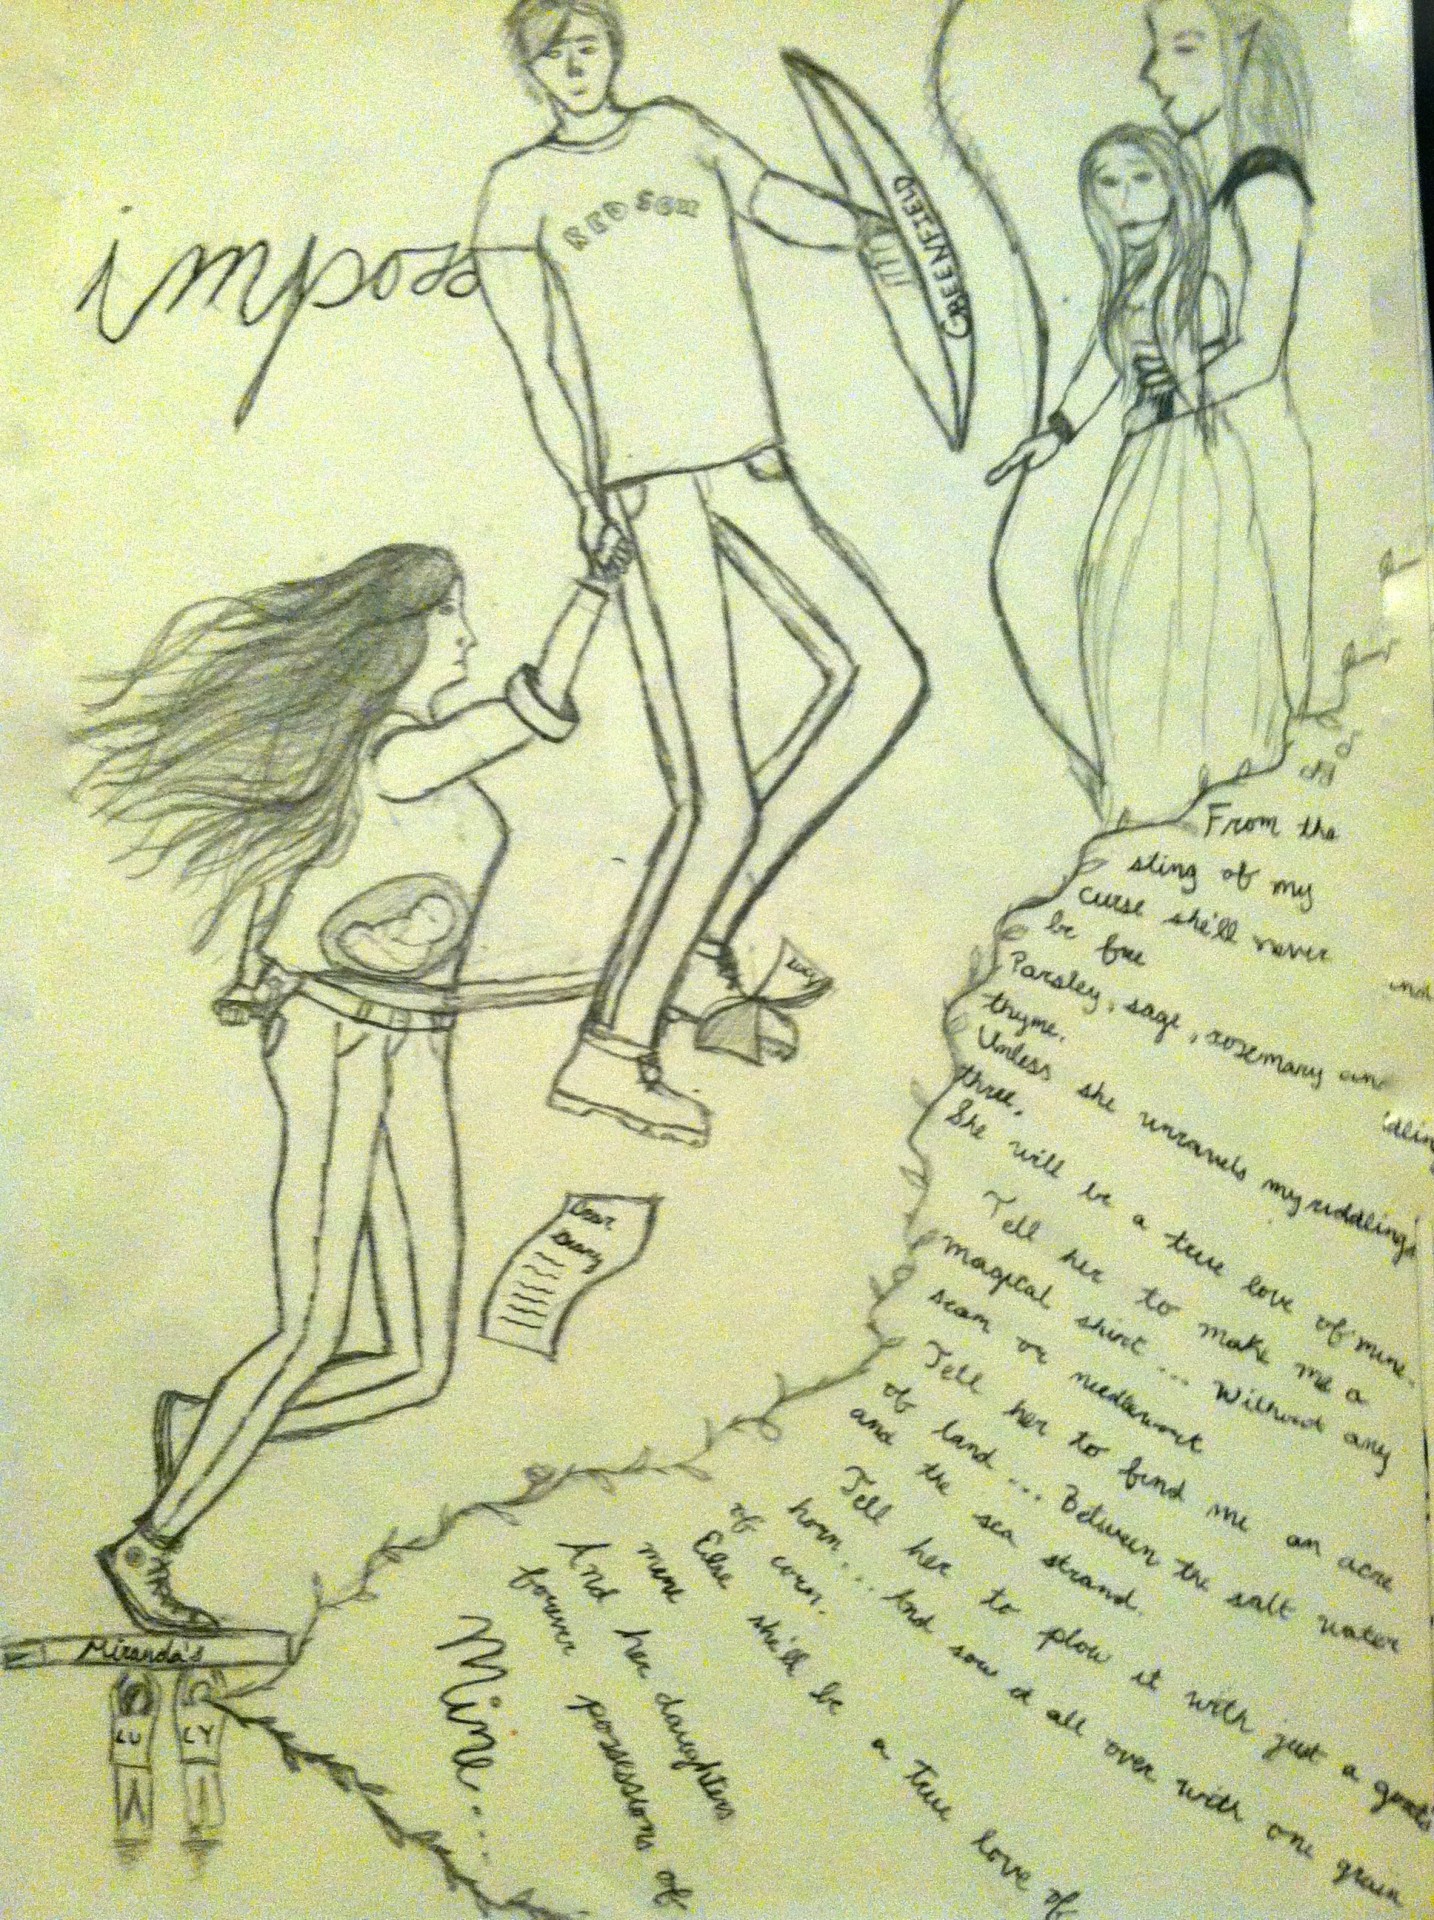 imposs
RED SOX
GREENFIELD
LUCY
Dear
Diary
Miranda's
LU
LY
From the
sting of my
curse she'll never
be free
Parsley, sage, rosemary an
thyme.
Unless she unravels my riddlings
three,
She will be a true love of mine.
Tell her to make me a
magical shirt... Without any
seam or needlework
Tell her to find me an acre
of land... Between the salt water
and the sea strand.
Tell her to plow it with just a goat's
horn... And sow it all over with one grain
of corn.
Else she'll be a true love of
mine
And her daughters
forever possessions of
Mine...